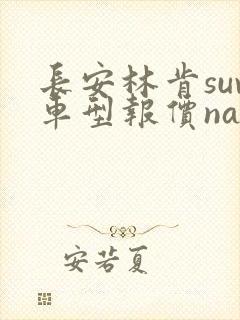 長安林肯suv
車型報價na
安若夏